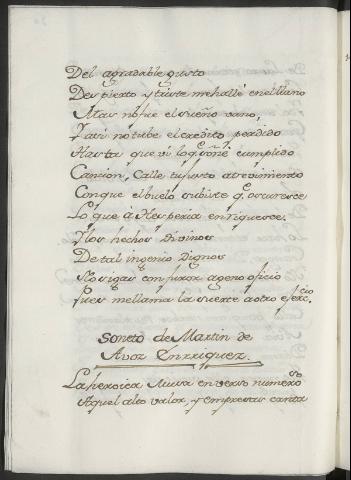 Del agradable gusto
Despierto y triste me hallé en el llano
Mas no fue el sueño vano,
Y asi no tube el credito perdido
Hasta que vi lo q. soñé cumplido
Cancion, Calle tu justo atrevimiento
Con que el buelo subiste q. oscuresce
Lo que â Hesperia enriquesce.
Y los hechos divinos
De tal ingenio Dignos
No sigas con furor ageno oficio
Pues me llama la suerte a otro exerc.cio
Soneto de Martin de
Avoz Enrriquez.
La heroica Musa en verso numeroso
Aquel alto valor, y empresas canta